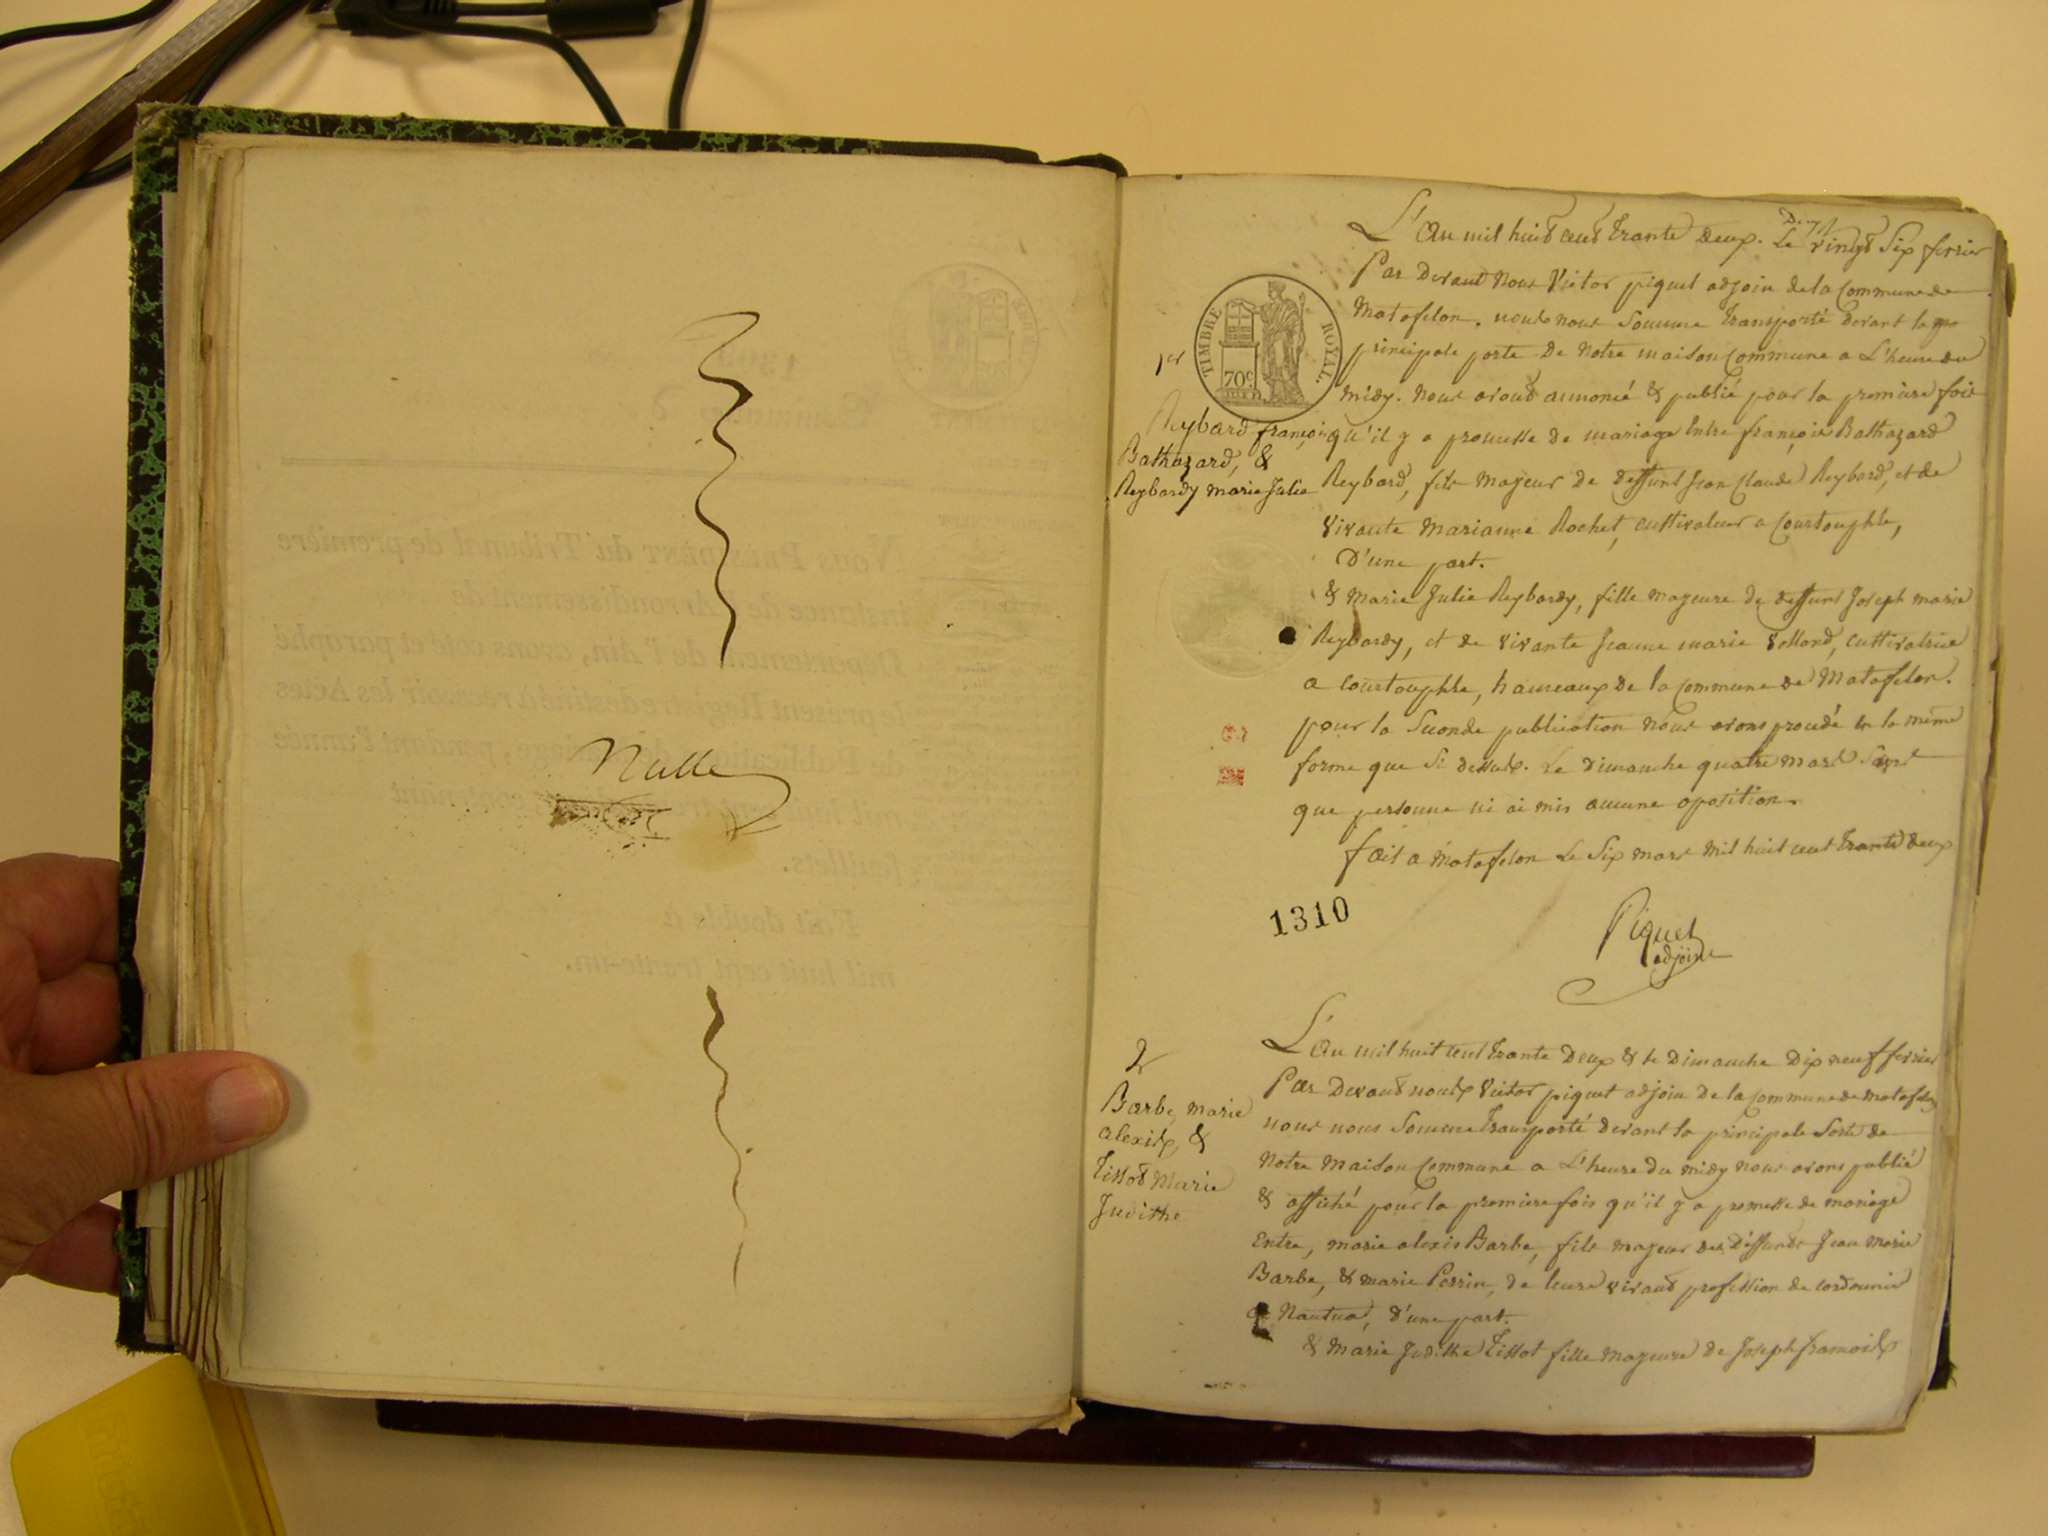 Nulle
L'an mil huit cent trante deux. Le vingt Six fevrier
Par Devant nous Victor piquet adjoin de la Commune de
Matafelon. nous nous Somme transporté devant la
principale porte De Notre maison Commune a L'heure du
midy. nous avons annoncé & publié pour la premiere fois
qu'il y a promesse de mariage Entre françois Balthazard
Reybard, fils majeur De deffunt Jean Claude Reybard, et de
vivante Marianne Rochet, cultivateur a Courtouphle,
D'une part.
& Marie Julie Reybardy, fille majeure de deffunt Joseph marie
Reybardy, et de vivante Jeanne marie Volland, cultivatrice
a Courtouphle, hameaux de la Commune de Matafelon.
pour la Seconde publication nous avons procedé en la même
forme que Si dessus. Le dimanche quatre mars
que personne ni ai mis aucune oposition.
fait a Matafelon Le Six mars Mil huit cent trante deux
Piquet
adjoint
1er
TIMBRE ROYAL.
70c
Reybard françois
Balthazard, &
Reybardy marie Julie
1310
L'an mil huit cent trante Deux & le Dimanche Dix neuf fevrier
Par Devant nous Victor piquet adjoin De la Commune de matafelon
nous nous Somme transporté devant la principale Porte de
Notre Maison Commune a L'heure du midy nous avons publié
& affiché pour la premiere fois qu'il y a promesse de mariage
Entre, marie alexis Barbe, fils majeur des Déffunts Jean Marie
Barbe, & marie Perrin, de leurs vivans profession de cordounie
a Nantua, d'une part.
& Marie Judithe Tissot fille majeure de Joseph francois
2
Barbe, marie
alexis, &
Tissot Marie
Judithe